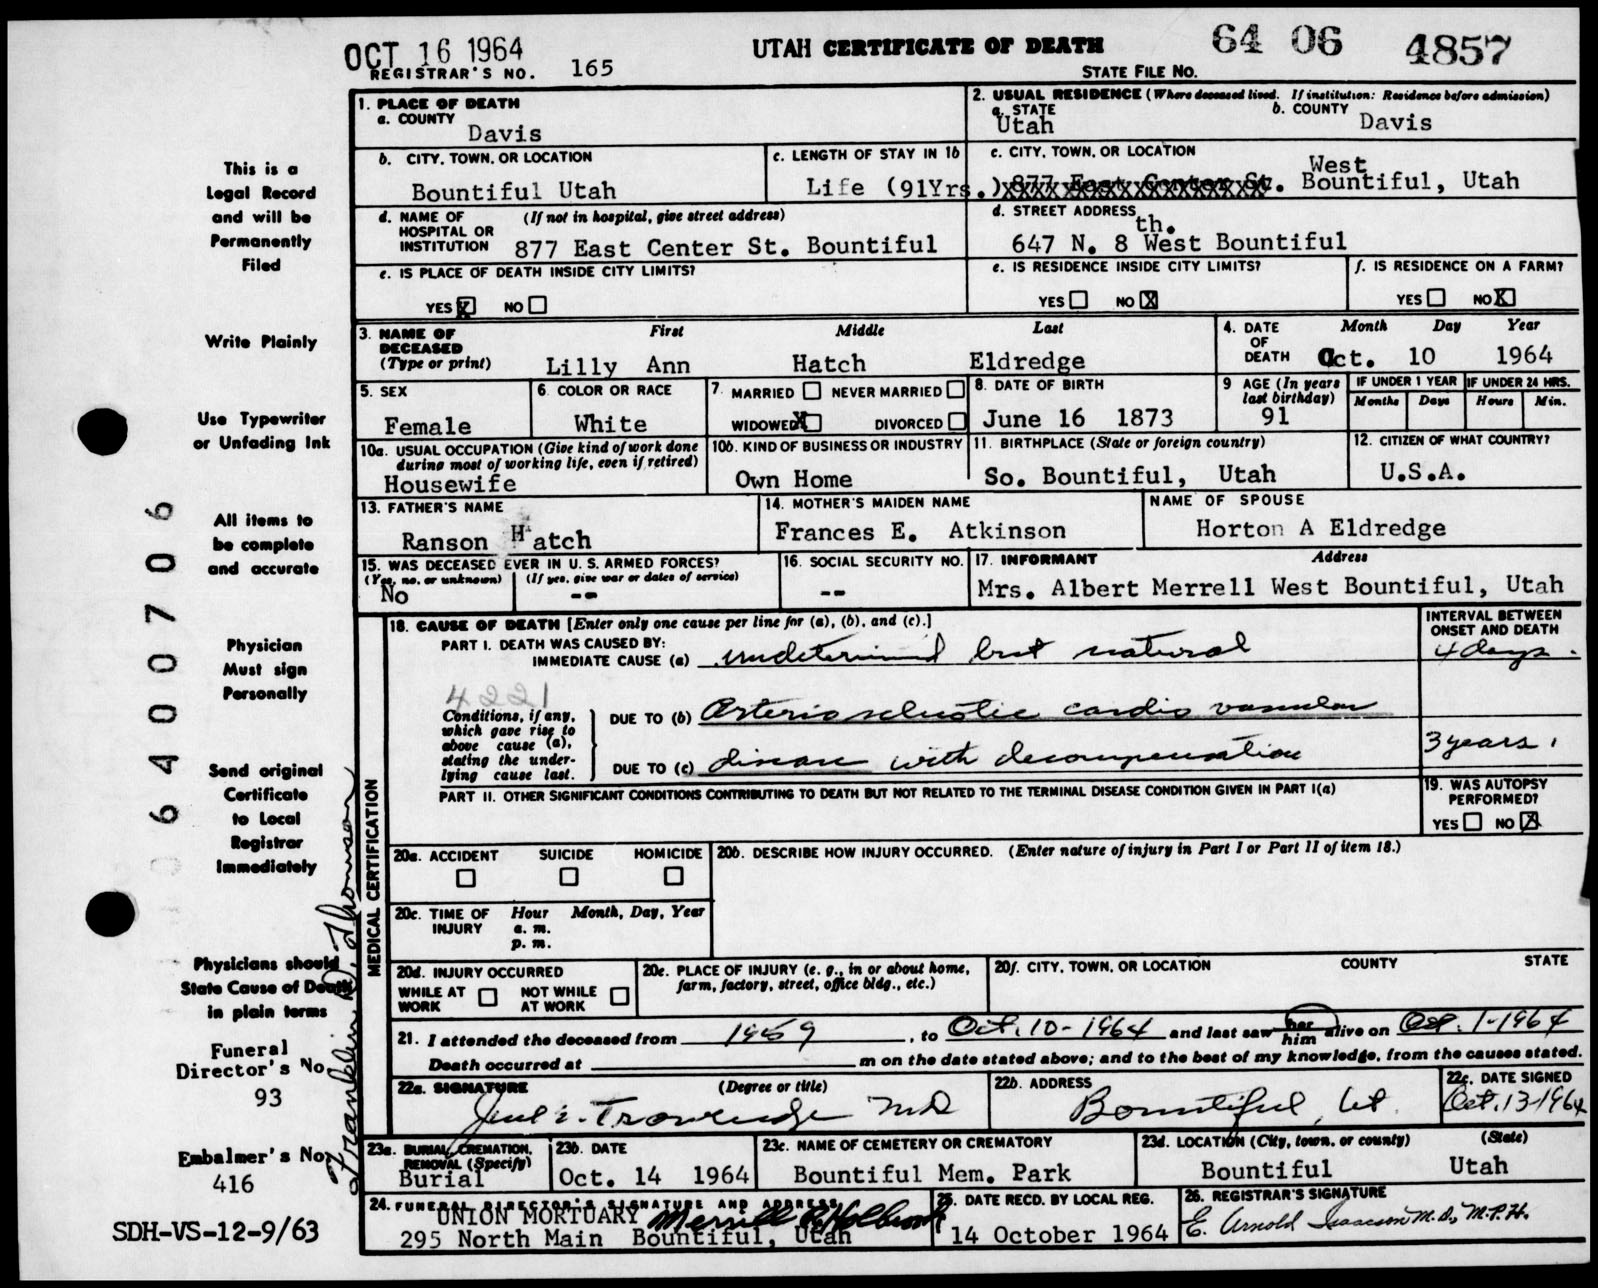 OCT 16 1964
REGISTRAR'S NO. 165
UTAH CERTIFICATE OF DEATH
64 06 4857
STATE FILE NO.
1. PLACE OF DEATH
a. COUNTY
Davis
2. USUAL RESIDENCE (Where deceased lived. If institution: Residence before admission)
a. STATE
Utah
b. COUNTY
Davis
b. CITY, TOWN, OR LOCATION
Bountiful Utah
c. LENGTH OF STAY IN 1b
Life (91Yrs.)
c. CITY, TOWN, OR LOCATION
West
877 East Center St. Bountiful, Utah
d. NAME OF HOSPITAL OR INSTITUTION
(If not in hospital, give street address)
877 East Center St. Bountiful
d. STREET ADDRESS
th.
647 N. 8 West Bountiful
e. IS PLACE OF DEATH INSIDE CITY LIMITS?
YES X NO
e. IS RESIDENCE INSIDE CITY LIMITS?
YES NO X
f. IS RESIDENCE ON A FARM?
YES NO X
3. NAME OF DECEASED (Type or print)
First Middle Last
Lilly Ann Hatch Eldredge
4. DATE OF DEATH
Month Day Year
Oct. 10 1964
5. SEX
Female
6. COLOR OR RACE
White
7. MARRIED NEVER MARRIED
WIDOWED X DIVORCED
8. DATE OF BIRTH
June 16 1873
9 AGE (In years last birthday)
91
IF UNDER 1 YEAR
Months Days
IF UNDER 24 HRS.
Hours Min.
10a. USUAL OCCUPATION (Give kind of work done during most of working life, even if retired)
Housewife
10b. KIND OF BUSINESS OR INDUSTRY
Own Home
11. BIRTHPLACE (State or foreign country)
So. Bountiful, Utah
12. CITIZEN OF WHAT COUNTRY?
U.S.A.
13. FATHER'S NAME
Ranson Hatch
14. MOTHER'S MAIDEN NAME
Frances E. Atkinson
NAME OF SPOUSE
Horton A Eldredge
15. WAS DECEASED EVER IN U. S. ARMED FORCES?
(Yes, no, or unknown) (If yes, give war or dates of service)
No --
16. SOCIAL SECURITY NO.
--
17. INFORMANT Address
Mrs. Albert Merrell West Bountiful, Utah
MEDICAL CERTIFICATION
18. CAUSE OF DEATH [Enter only one cause per line for (a), (b), and (c).]
PART I. DEATH WAS CAUSED BY:
IMMEDIATE CAUSE (a) undetermined but natural
INTERVAL BETWEEN ONSET AND DEATH
4 days.
4221
Conditions, if any, which gave rise to above cause (a), stating the underlying cause last.
DUE TO (b) Arteriosclerotic cardio vascular
DUE TO (c) disease with decompensation
3 years.
PART II. OTHER SIGNIFICANT CONDITIONS CONTRIBUTING TO DEATH BUT NOT RELATED TO THE TERMINAL DISEASE CONDITION GIVEN IN PART I(a)
19. WAS AUTOPSY PERFORMED?
YES NO X
20a. ACCIDENT SUICIDE HOMICIDE
20b. DESCRIBE HOW INJURY OCCURRED. (Enter nature of injury in Part I or Part II of item 18.)
20c. TIME OF INJURY
Hour Month, Day, Year
a. m.
p. m.
20d. INJURY OCCURRED
WHILE AT WORK NOT WHILE AT WORK
20e. PLACE OF INJURY (e. g., in or about home, farm, factory, street, office bldg., etc.)
20f. CITY, TOWN, OR LOCATION COUNTY STATE
21. I attended the deceased from 1959, to Oct. 10-1964 and last saw her him alive on Oct. 1-1964
Death occurred at m on the date stated above; and to the best of my knowledge, from the causes stated.
22a. SIGNATURE (Degree or title)
Trowbridge MD
22b. ADDRESS
Bountiful, Ut.
22c. DATE SIGNED
Oct. 13-1964
23a. BURIAL, CREMATION, REMOVAL (Specify)
Burial
23b. DATE
Oct. 14 1964
23c. NAME OF CEMETERY OR CREMATORY
Bountiful Mem. Park
23d. LOCATION (City, town, or county) (State)
Bountiful Utah
24. FUNERAL DIRECTOR'S SIGNATURE AND ADDRESS
UNION MORTUARY Merrill R. Holbrook
295 North Main Bountiful, Utah
25. DATE RECD. BY LOCAL REG.
14 October 1964
26. REGISTRAR'S SIGNATURE
E. Arnold Isaacson M.D., M.P.H.
This is a
Legal Record
and will be
Permanently
Filed
Write Plainly
Use Typewriter
or Unfading Ink
All items to
be complete
and accurate
Physician
Must sign
Personally
Send original
Certificate
to Local
Registrar
Immediately
Physicians should
State Cause of Death
in plain terms
Funeral
Director's No.
93
Embalmer's No.
416
SDH-VS-12-9/63
6400706
Franklin D. Thomson